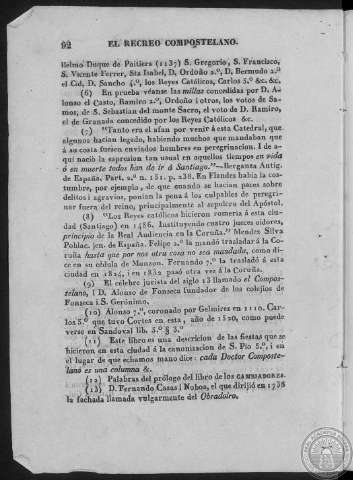 92 EL RECREO COMPOSTELANO.
llelmo Duque de Poitiers (1137) S. Gregorio, S. Francisco,
S. Vicente Ferrer, Sta Isabel, D, Ordoño 2.º, D, Bermudo 2.º
el Cid, D, Sancho 4.º, los Reyes Católicos, Carlos 5.º &c. &c.
(6) En prueva véanse las millas concedidas por D. A-
lonso el Casto, Ramiro 2.º, Ordoño i otros, los votos de Sa-
mos, de S. Sebastian del monte Sacro, el voto de D. Ramiro,
el de Granada concedido por los Reyes Católicos &c.
(7) "Tanto era el afan por venir á esta Catedral, que
algunos hacian legado, habiendo muchos que mandaban que
á su costa fuesen enviados hombres en peregrinacion. I de a-
quí nació la espresion tan usual en aquellos tiempos en vida
ó en muerte todos han de ir á Santiago."—Berganza Antig.
de España. Part. 2.ª n. 151. p. 238. En Flandes habia la cos-
tumbre, por ejemplo, de que cuando se hacian paces sobre
delitos i agravios, ponian la pena á los culpables de peregri-
nar fuera del reino, principalmente al sepulcro del Apóstol.
(8) "Los Reyes católicos hicieron romeria á esta ciu-
dad (Santiago) en 1486. Instituyendo cuatro jueces oidores,
principio de la Real Audiencia en la Coruña." Mendes Silva
Poblac. jen. de España. Felipe 2.º la mandó trasladar á la Co-
ruña hasta que por nos otra cosa no sea mandado, como di-
ce en su cédula de Monzon. Fernando 7.º la trasladó á esta
ciudad en 1824, i en 1832 pasó otra vez á la Coruña.
(9) El célebre jucista del siglo 13 llamado el Compos-
telano, i D. Alonso de Fonseca fundador de los colejios de
Fonseca i S. Gerónimo.
(10) Alonso 7.º, coronado por Gelmirez en 1110. Car-
los 5.º que tuvo Cortes en esta, año de 1520, como puede
verse en Sandoval lib. 5.º § 3.º
(11) Este libro es una descricion de las fiestas que se
hicieron en esta ciudad á la canonizacion de S. Pio 5.º, i en
el lugar de que echamos mano dice: cada Doctor Composte-
lano es una columna &.
(12) Palabras del prólogo del libro de los CAMBIADORES.
(13) D. Fernando Casas i Noboa, el que dirijió en 1738
la fachada llamada vulgarmente del Obradoiro.